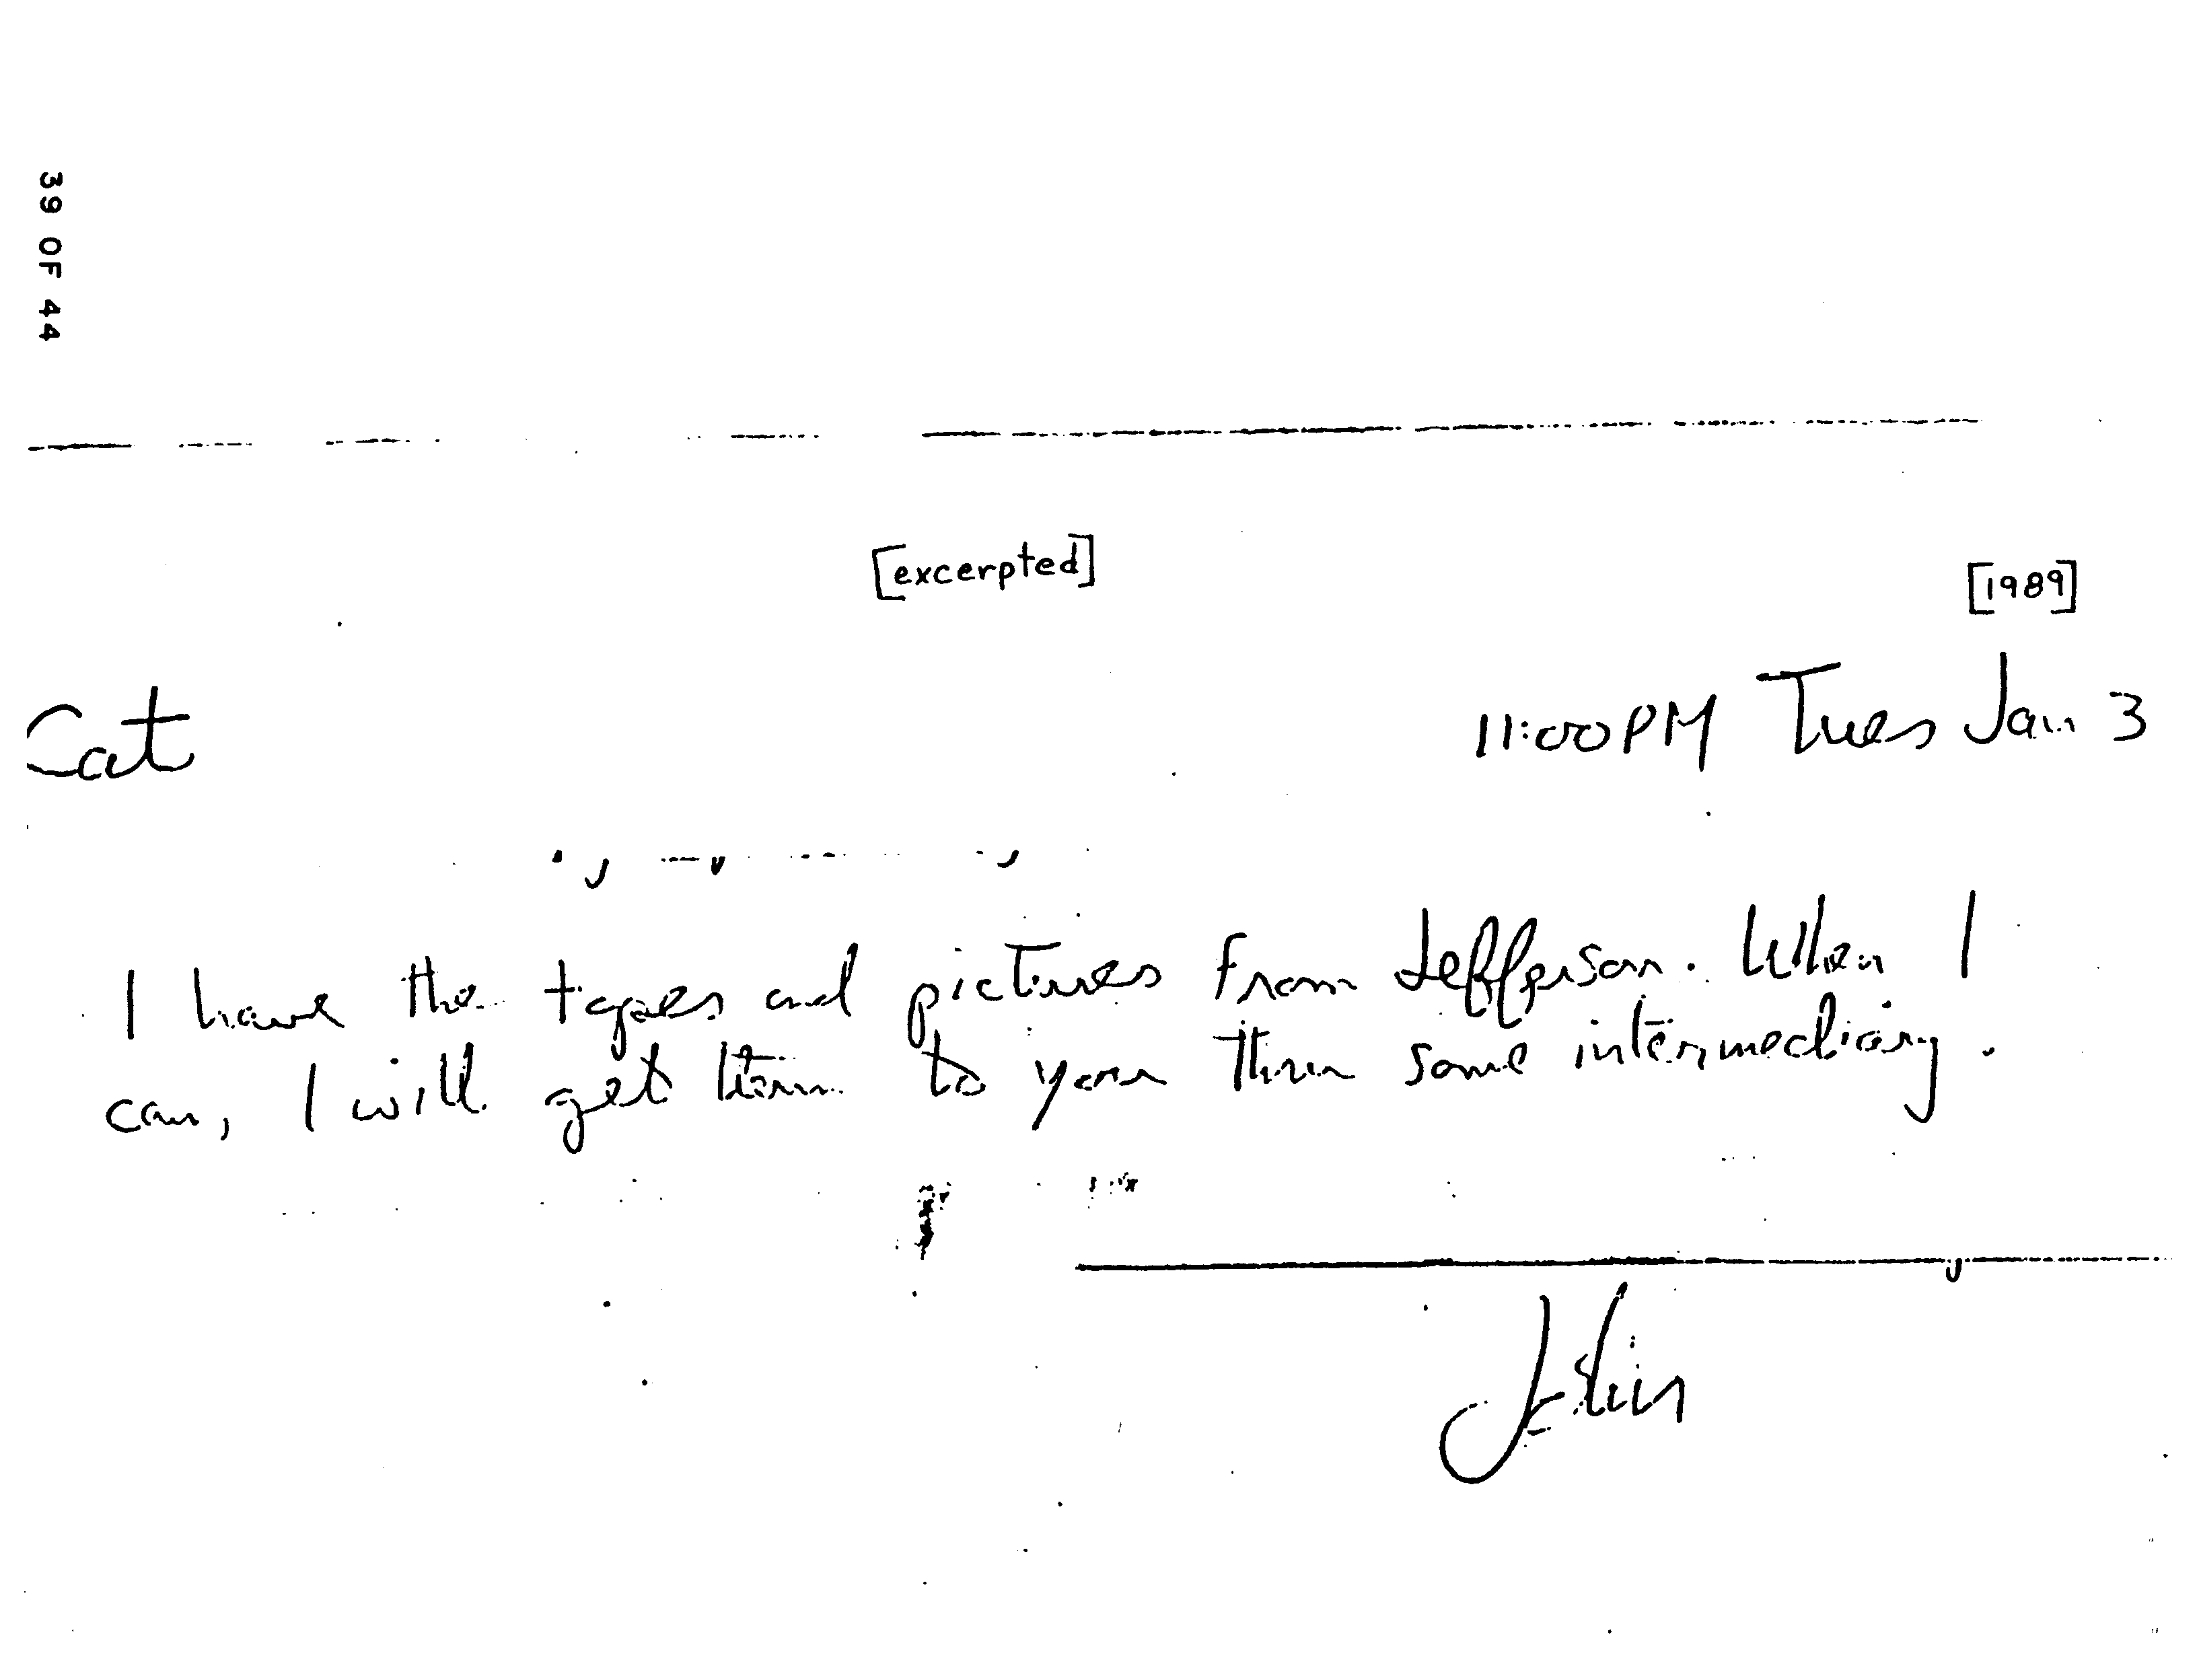 39 OF 44
[excerpted]
[1989]
Cat 11:00PM Tues Jan 3
I have the tapes and pictures from Jefferson. When I
can, I will get them to you thru some intermediary.
John